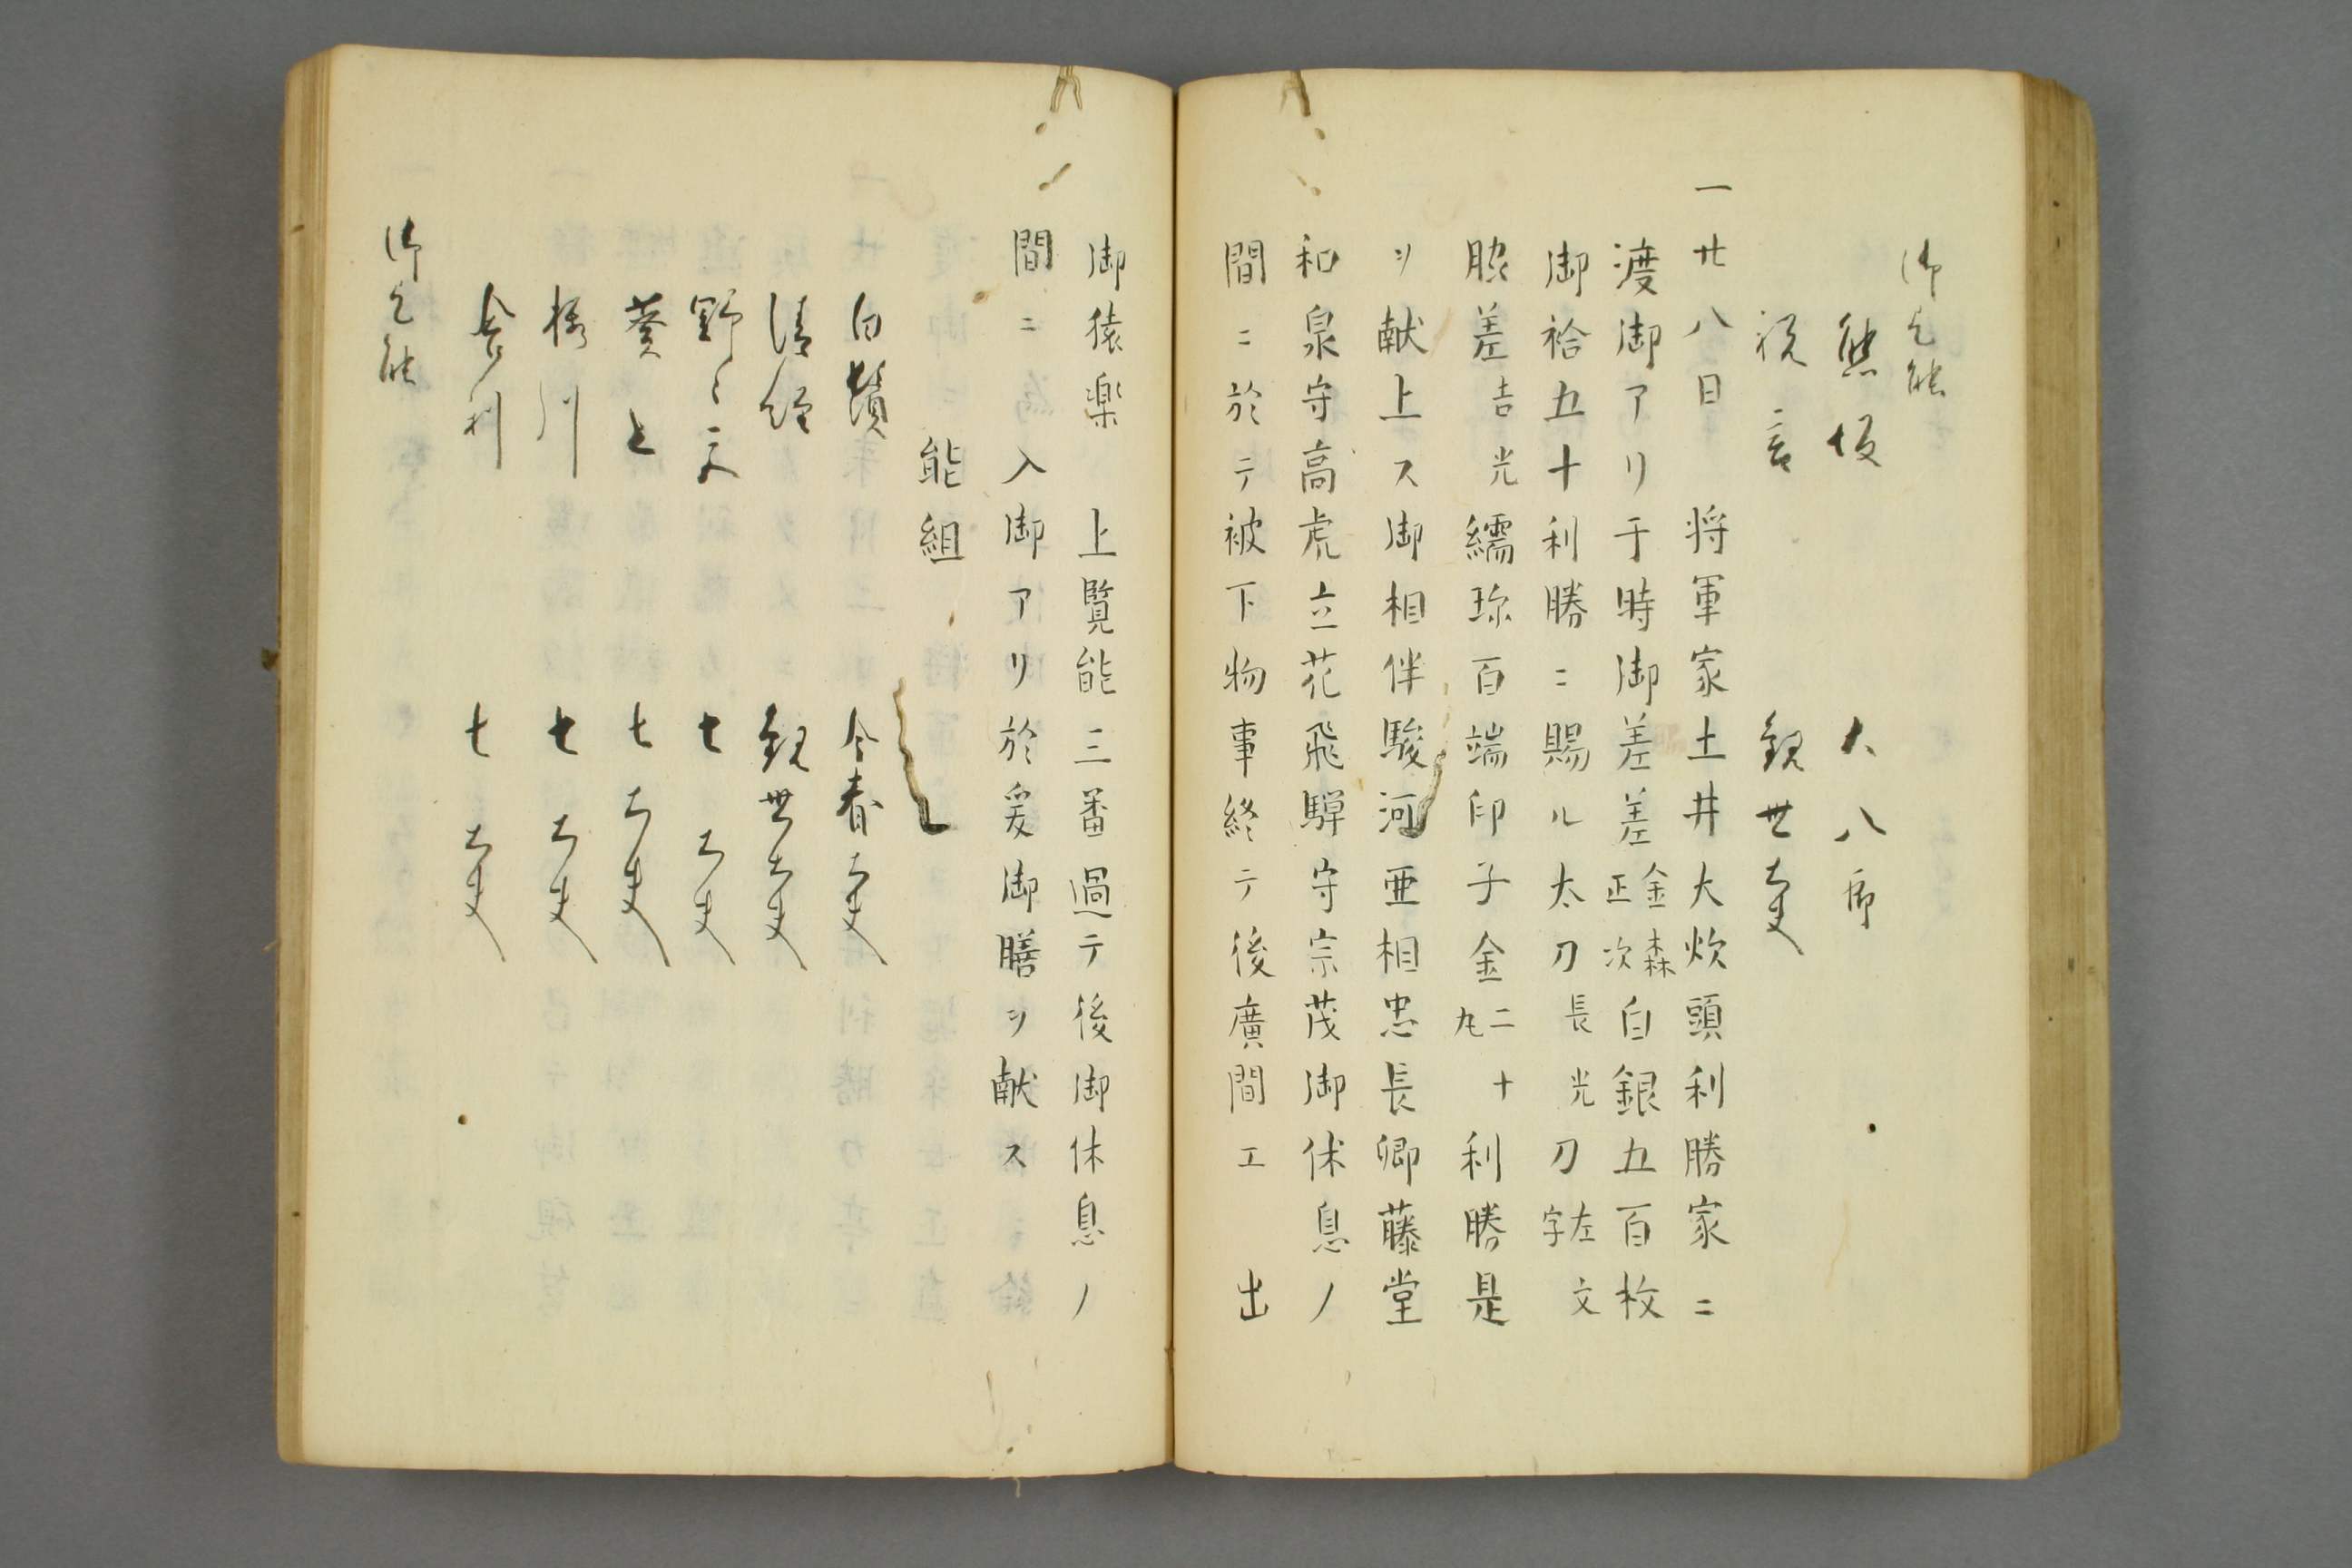 御乞能
熊坂 大八郎
祝言 観世大夫
一廿八日 将軍家土井大炊頭利勝家ニ
渡御アリ于時御差差金森正次白銀五百枚
御袷五十利勝ニ賜ル太刀長光刀左文字
脇差吉光繻珎百端印子金二十丸利勝是
ヲ献上ス御相伴駿河亜相忠長卿藤堂
和泉守高虎立花飛騨守宗茂御休息ノ
間ニ於テ被下物事終テ後廣間エ 出
御猿楽 上覧能三番過テ後御休息ノ
間ニ 入御アリ於爰御膳ヲ献ス
能組
白鬚 今春大夫
清經 観世大夫
野々宮 七大夫
葵上 七大夫
桜川 七大夫
舎利 七大夫
御乞能